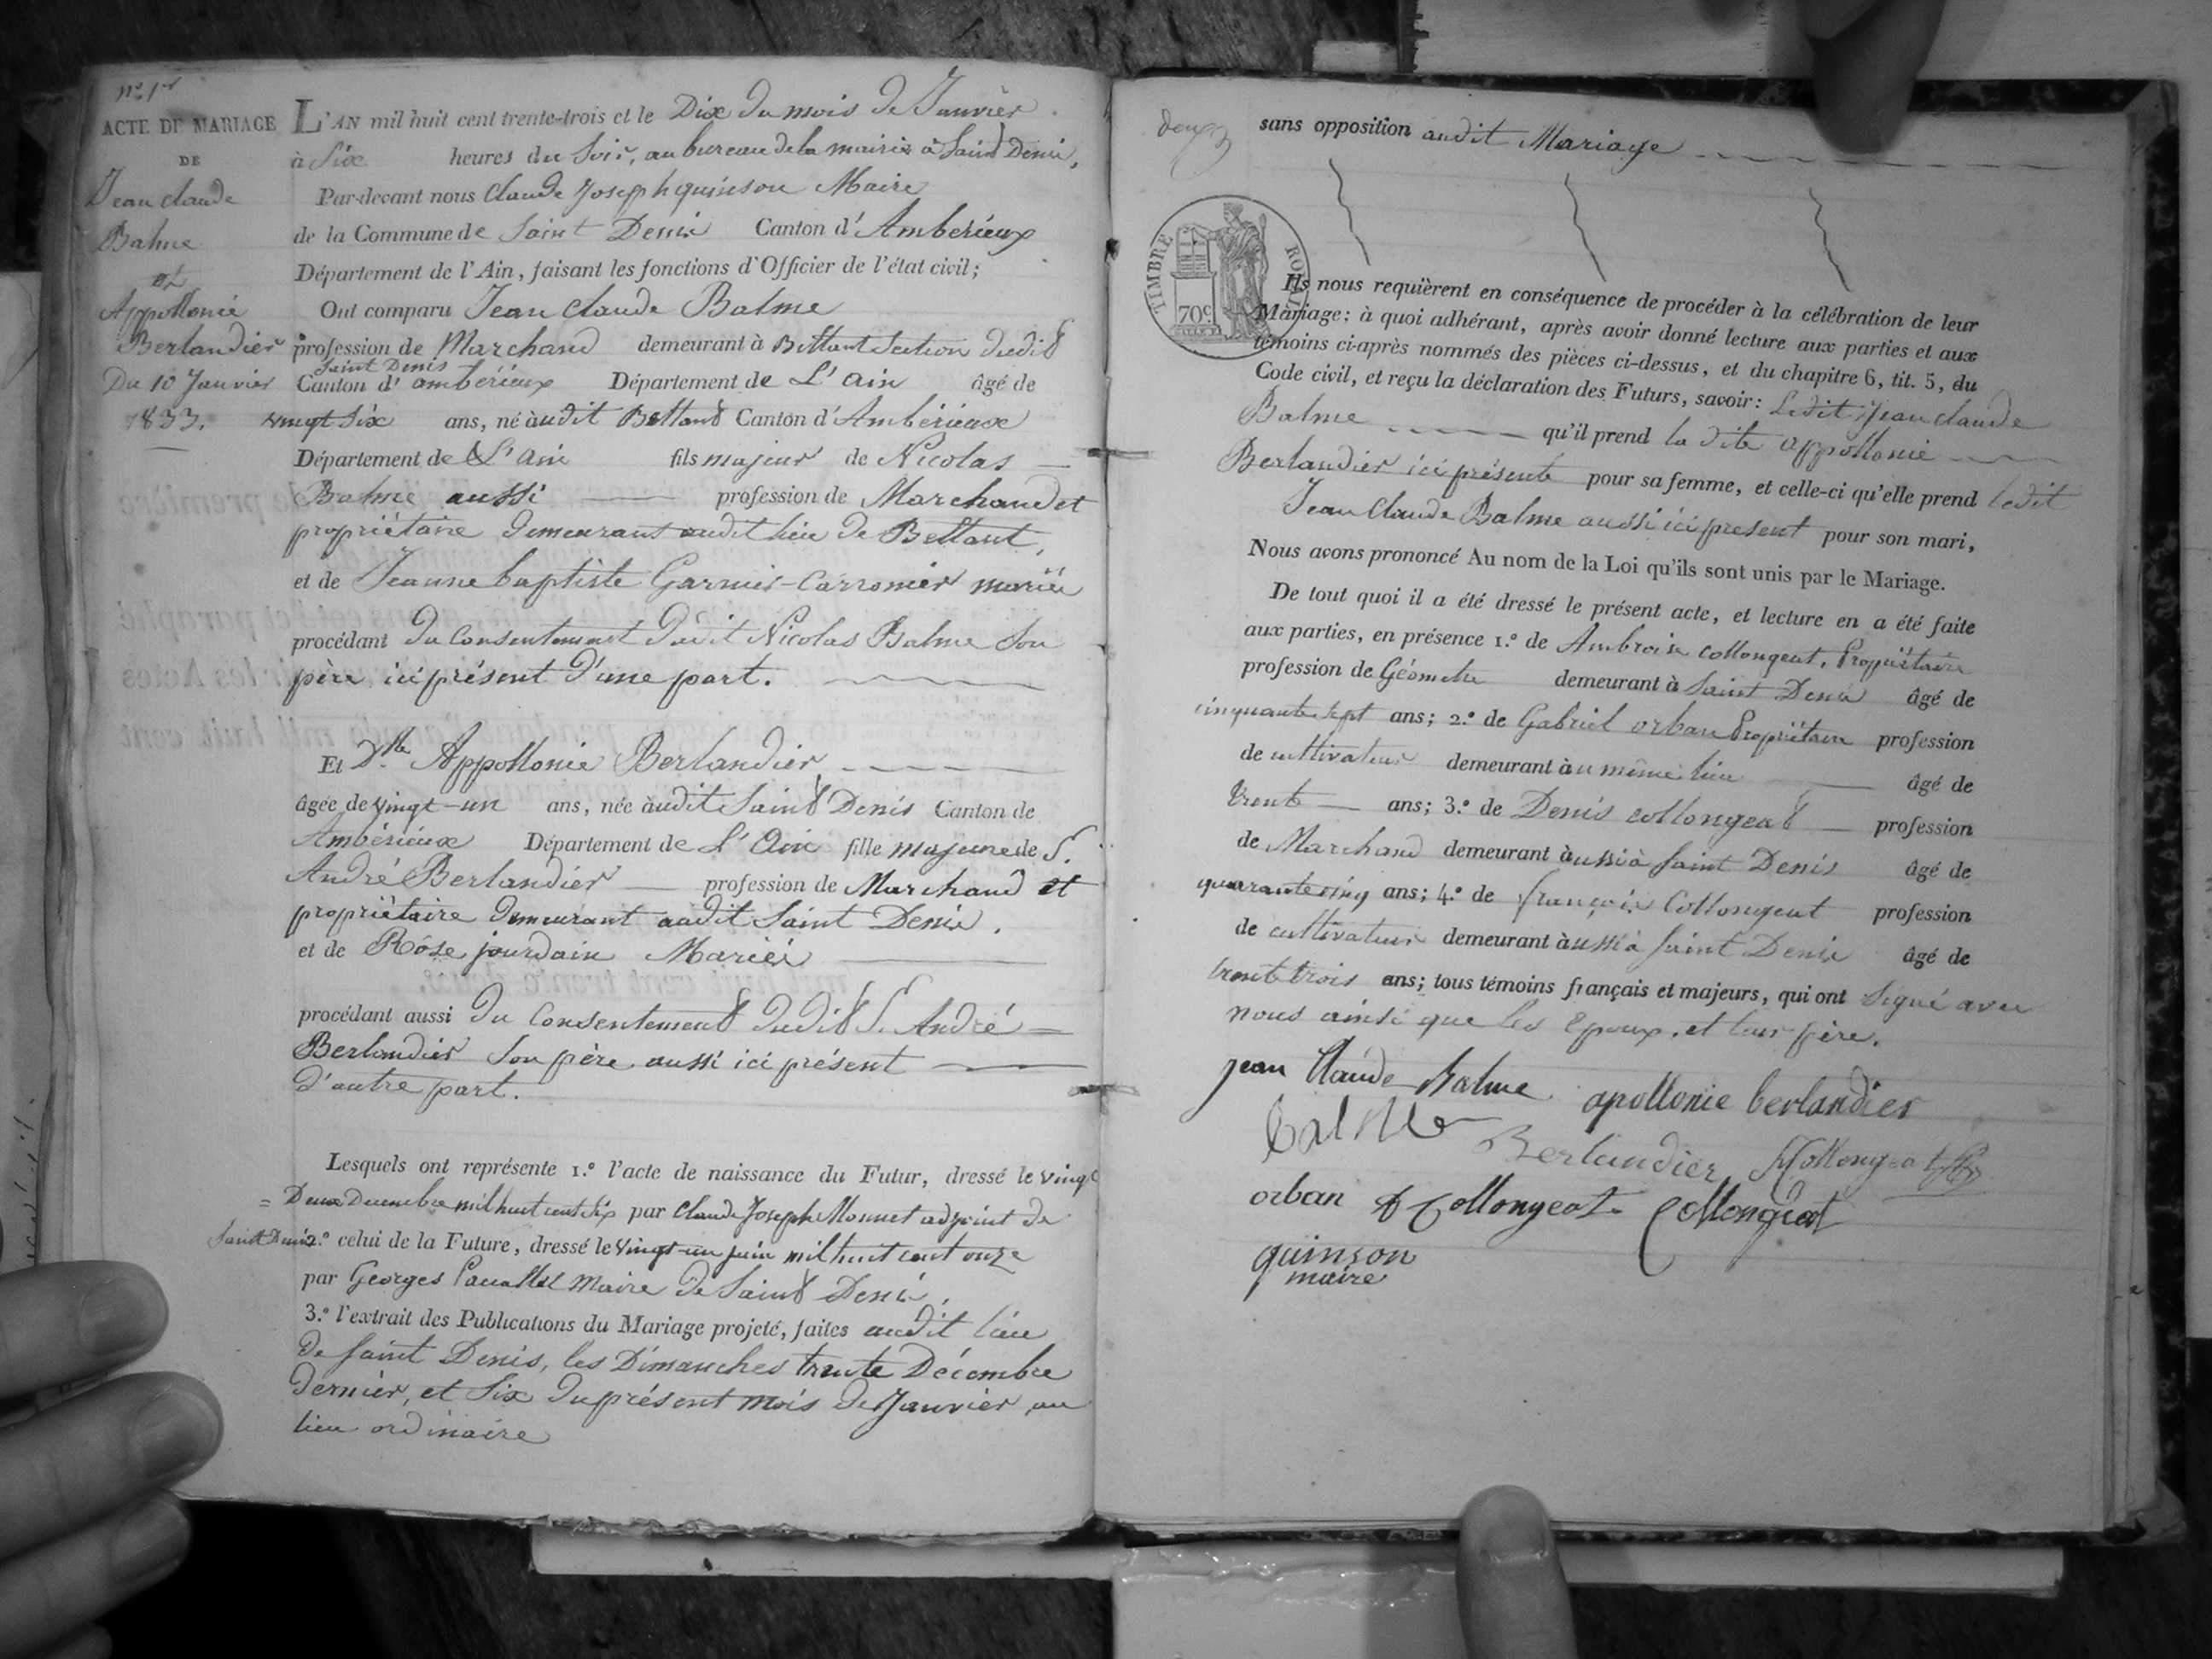 nº 1er
ACTE DE MARIAGE
DE
Jean claude
Balme
et
Appollonie
Berlandier
Du 10 Janvier
1833.
L'AN mil huit cent trente-trois et le Dix du mois de Janvier
à Six heures du Soir, au bureau de la mairie à Saint Denis,
Par-devant nous Claude Joseph quinson Maire
de la Commune de Saint Denis Canton d'Ambérieux
Département de l'Ain, faisant les fonctions d'Officier de l'état civil;
Ont comparu Jean Claude Balme
profession de Marchand demeurant à Bettant Section dudit
Saint Denis
Canton d'ambérieux Département de L'ain âgé de
vingt Six ans, né audit Bettant Canton d'Ambérieux
Département de L'ain fils majeur de Nicolas
Balme aussi profession de Marchand et
propriétaire demeurant audit lieu de Bettant,
et de Jeanne baptiste Garnier-Carronier mariée
procédant du Consentement dudit Nicolas Balme Son
père ici présent d'une part.
Et Dlle Appollonie Berlandier
âgée de vingt-un ans, née audit Saint Denis Canton de
Ambérieux Département de L'Ain fille majeure de S.
André Berlandier profession de Marchand et
propriétaire demeurant audit Saint Denis.
et de Rôse jourdain Mariée
procédant aussi du Consentement dudit S. André
Berlandier Son père aussi ici présent
d'autre part.
Lesquels ont représente 1.º l'acte de naissance du Futur, dressé le vingt
Deux Decembre mil huit cent Six par Claude Joseph Monnet adjoint de
Saint Denis 2.º celui de la Future, dressé le vingt-un juin mil huit cent onze
par Georges Maire de Saint Denis,
3.º l'extrait des Publications du Mariage projeté, faites audit lieu
de Saint Denis, les Dimanches trente Décembre
dernier, et Six du présent mois de Janvier, au
lieu ordinaire
deux
sans opposition audit Mariage
TIMBRE ROYAL
70c
Ils nous requièrent en conséquence de procéder à la célébration de leur
Mariage; à quoi adhérant, après avoir donné lecture aux parties et aux
témoins ci-après nommés des pièces ci-dessus, et du chapitre 6, tit. 5, du
Code civil, et reçu la déclaration des Futurs, savoir: Ledit Jean claude
Balme qu'il prend la dite appollonie
Berlandier ici présente pour sa femme, et celle-ci qu'elle prend ledit
Jean Claude Balme aussi ici present pour son mari,
Nous avons prononcé Au nom de la Loi qu'ils sont unis par le Mariage.
De tout quoi il a été dressé le présent acte, et lecture en a été faite
aux parties, en présence 1.º de Ambroise Collongeat, Propriétaire
profession de Géometre demeurant à Saint Denis âgé de
cinquante sept ans; 2.º de Gabriel orban Propriétaire profession
de cultivateur demeurant au même lieu âgé de
trente ans; 3.º de Denis collongeat profession
de Marchand demeurant aussi à Saint Denis âgé de
quarante cinq ans; 4.º de françois Collongeat profession
de cultivateur demeurant aussi à Saint Denis âgé de
trente trois ans; tous témoins français et majeurs, qui ont Signé avec
nous ainsi que les Epoux, et leur père.
jean Claude Balme apollonie berlandier
balme Berlandier Collongeat
orban Collongeat Collongeat
quinson
maire